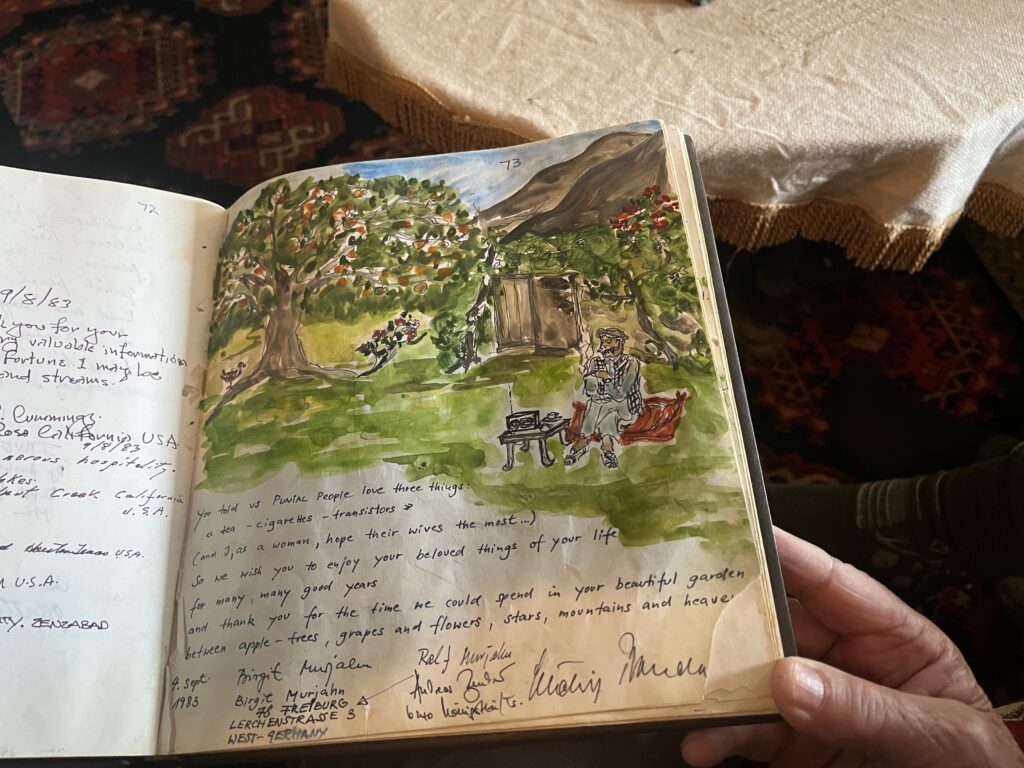 72
9/8/83
you for your
valuable information
Fortune I may be
and streams.
Cummings.
Rosa California USA.
9/8/83
hospitality.
Creek California
U.S.A.
USA.
U.S.A.
ZENZABAD
73
You told us PUNIAL People love three things:
tea - cigarettes - transistors
(and I, as a woman, hope their wives the most...)
So we wish you to enjoy your beloved things of your life
for many, many good years
and thank you for the time we could spend in your beautiful garden
between apple-trees, grapes and flowers, stars, mountains and heaven
Birgit Murjahn
Rolf Murjahn
4. Sept.
1983
Birgit Murjahn
78 FREIBURG
LERCHENSTRASSE 3
WEST-GERMANY
Andreas